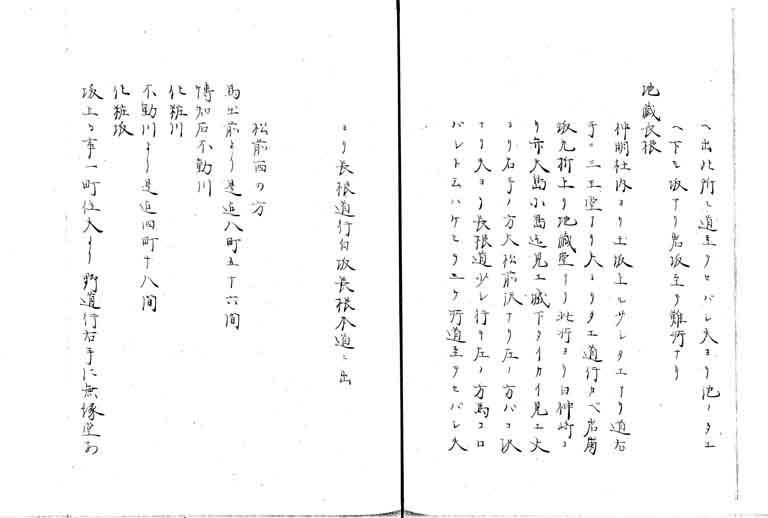 ヘ出此所ニ道至テセバレ夫ヨリ池ノタエ
ヘ下モ坂アリ岩坂至テ難所ナリ
地蔵長根
神明社内ヨリ土坂上モサレタエアリ道右
手ニ三王堂アリ夫ヨリタエ道行カベ岩崩
坂九折上リ地蔵堂アリ此所ヨリ白神崎コ
リ亦大島小島迄見エ城下タイカイ見エ夫
ヨリ右手ノ方大松前沢ナリ左ノ方バコ沢
ナリ夫ヨリ長根道少レ行キ左ノ方馬コロ
バレトエハケヒリエケ所道至テセバレ夫
ヨリ長根道行白坂長根本道ニ出
松前西の方
馬出前より是迄八町五十六間
博知石不動川
化粧川
不動川より是迄四町十八間
化粧坂
坂上る事一町位夫より野道行右手に無塚堂あ